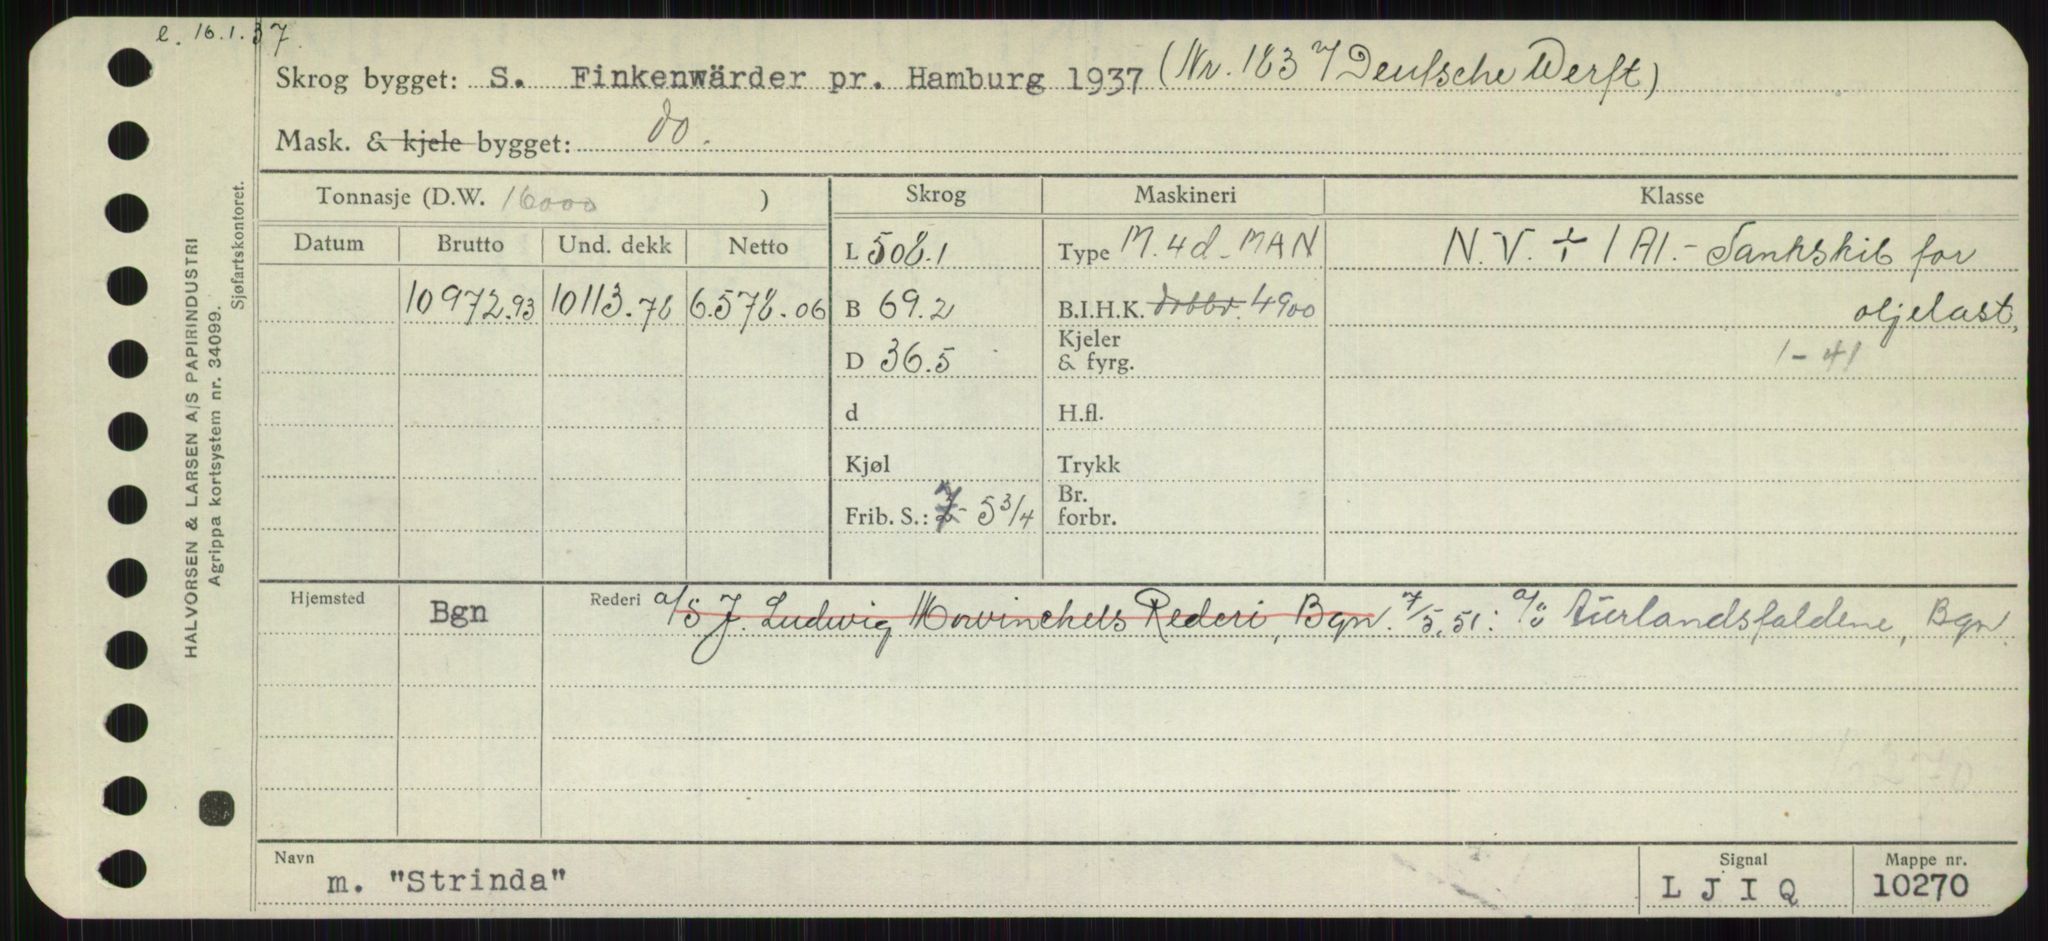 e. 16.1.37.
Skrog bygget: S. Finkenwärder pr. Hamburg 1937 (Nr. 183 7 Deutsche Werft)
Mask. & kjele bygget: do.
Tonnasje (D.W. 16000 )
Skrog
Maskineri
Klasse
Datum Brutto Und. dekk Netto
10972.93 10113.78 6.578.06
L 508.1
B 69.2
D 36.5
d
Kjøl
Frib. S.: 7- 5 3/4
Type M. 4d. MAN
B.I.H.K. dobbv. 4900
Kjeler
& fyrg.
H.fl.
Trykk
Br.
forbr.
N.V. + 1A1.- Tankskib for
oljelast,
1-41
Hjemsted Bgn
Rederi a/s J. Ludwig Mowinckels Rederi, Bgn. 7/5.51: a/s Aurlandsfaldene, Bgn
Navn
m. "Strinda"
Signal
L J I Q
Mappe nr.
10270
HALVORSEN & LARSEN A/S PAPIRINDUSTRI
Agrippa kortsystem nr. 34099.
Sjøfartskontoret.